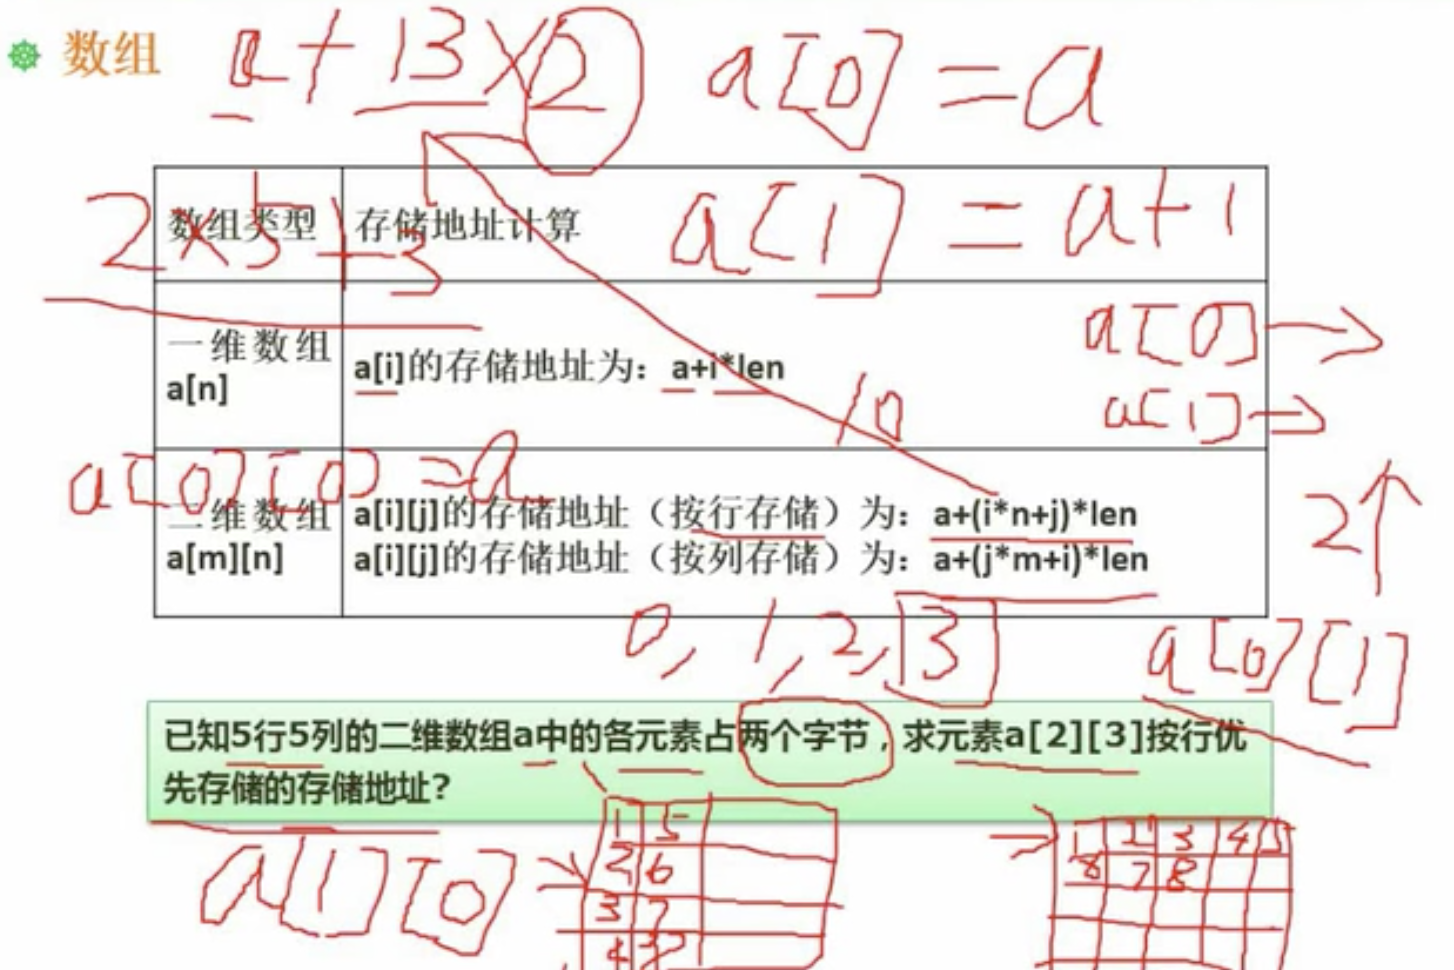 数组
a+13×2
a[0]=a
数组类型
存储地址计算
2×5+3
a[1]=a+1
一维数组
a[n]
a[i]的存储地址为：a+i*len
a[0]
a[1]
10
a[0][0]=a
二维数组
a[m][n]
a[i][j]的存储地址（按行存储）为：a+(i*n+j)*len
a[i][j]的存储地址（按列存储）为：a+(j*m+i)*len
2
0, 1, 2, 3
a[0][1]
已知5行5列的二维数组a中的各元素占两个字节，求元素a[2][3]按行优
先存储的存储地址？
a[1][0]
1 5
2 6
3 7
1 2 3 4 5
7 8